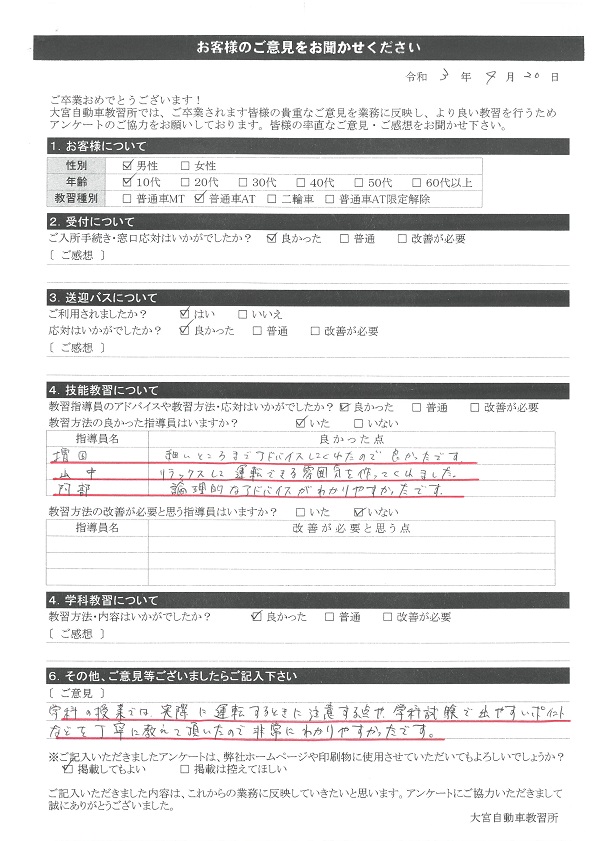 お客様のご意見をお聞かせください
令和 3 年 9 月 20 日
ご卒業おめでとうございます！
大宮自動車教習所では、ご卒業されます皆様の貴重なご意見を業務に反映し、より良い教習を行うため
アンケートのご協力をお願いしております。皆様の率直なご意見・ご感想をお聞かせ下さい。
1. お客様について
性別 ☑ 男性 □ 女性
年齢 ☑ 10代 □ 20代 □ 30代 □ 40代 □ 50代 □ 60代以上
教習種別 □ 普通車MT ☑ 普通車AT □ 二輪車 □ 普通車AT限定解除
2. 受付について
ご入所手続き・窓口応対はいかがでしたか？ ☑ 良かった □ 普通 □ 改善が必要
〔 ご感想 〕
3. 送迎バスについて
ご利用されましたか？ ☑ はい □ いいえ
応対はいかがでしたか？ ☑ 良かった □ 普通 □ 改善が必要
〔 ご感想 〕
4. 技能教習について
教習指導員のアドバイスや教習方法・応対はいかがでしたか？ ☑ 良かった □ 普通 □ 改善が必要
教習方法の良かった指導員はいますか？ ☑ いた □ いない
指導員名 良かった点
増田 細いところまでアドバイスしてくれたので良かったです
山中 リラックスして運転できる雰囲気を作ってくれました。
阿部 論理的なアドバイスがわかりやすかったです。
教習方法の改善が必要と思う指導員はいますか？ □ いた ☑ いない
指導員名 改善が必要と思う点
4. 学科教習について
教習方法・内容はいかがでしたか？ ☑ 良かった □ 普通 □ 改善が必要
〔 ご感想 〕
6. その他、ご意見等ございましたらご記入下さい
〔 ご意見 〕
学科の授業では実際に運転するときに注意する点や、学科試験で出やすいポイント
などを丁寧に教えて頂いたので非常にわかりやすかったです。
※ご記入いただきましたアンケートは、弊社ホームページや印刷物に使用させていただいてもよろしいでしょうか？
☑ 掲載してもよい □ 掲載は控えてほしい
ご記入いただきました内容は、これからの業務に反映していきたいと思います。アンケートにご協力いただきまして
誠にありがとうございました。
大宮自動車教習所